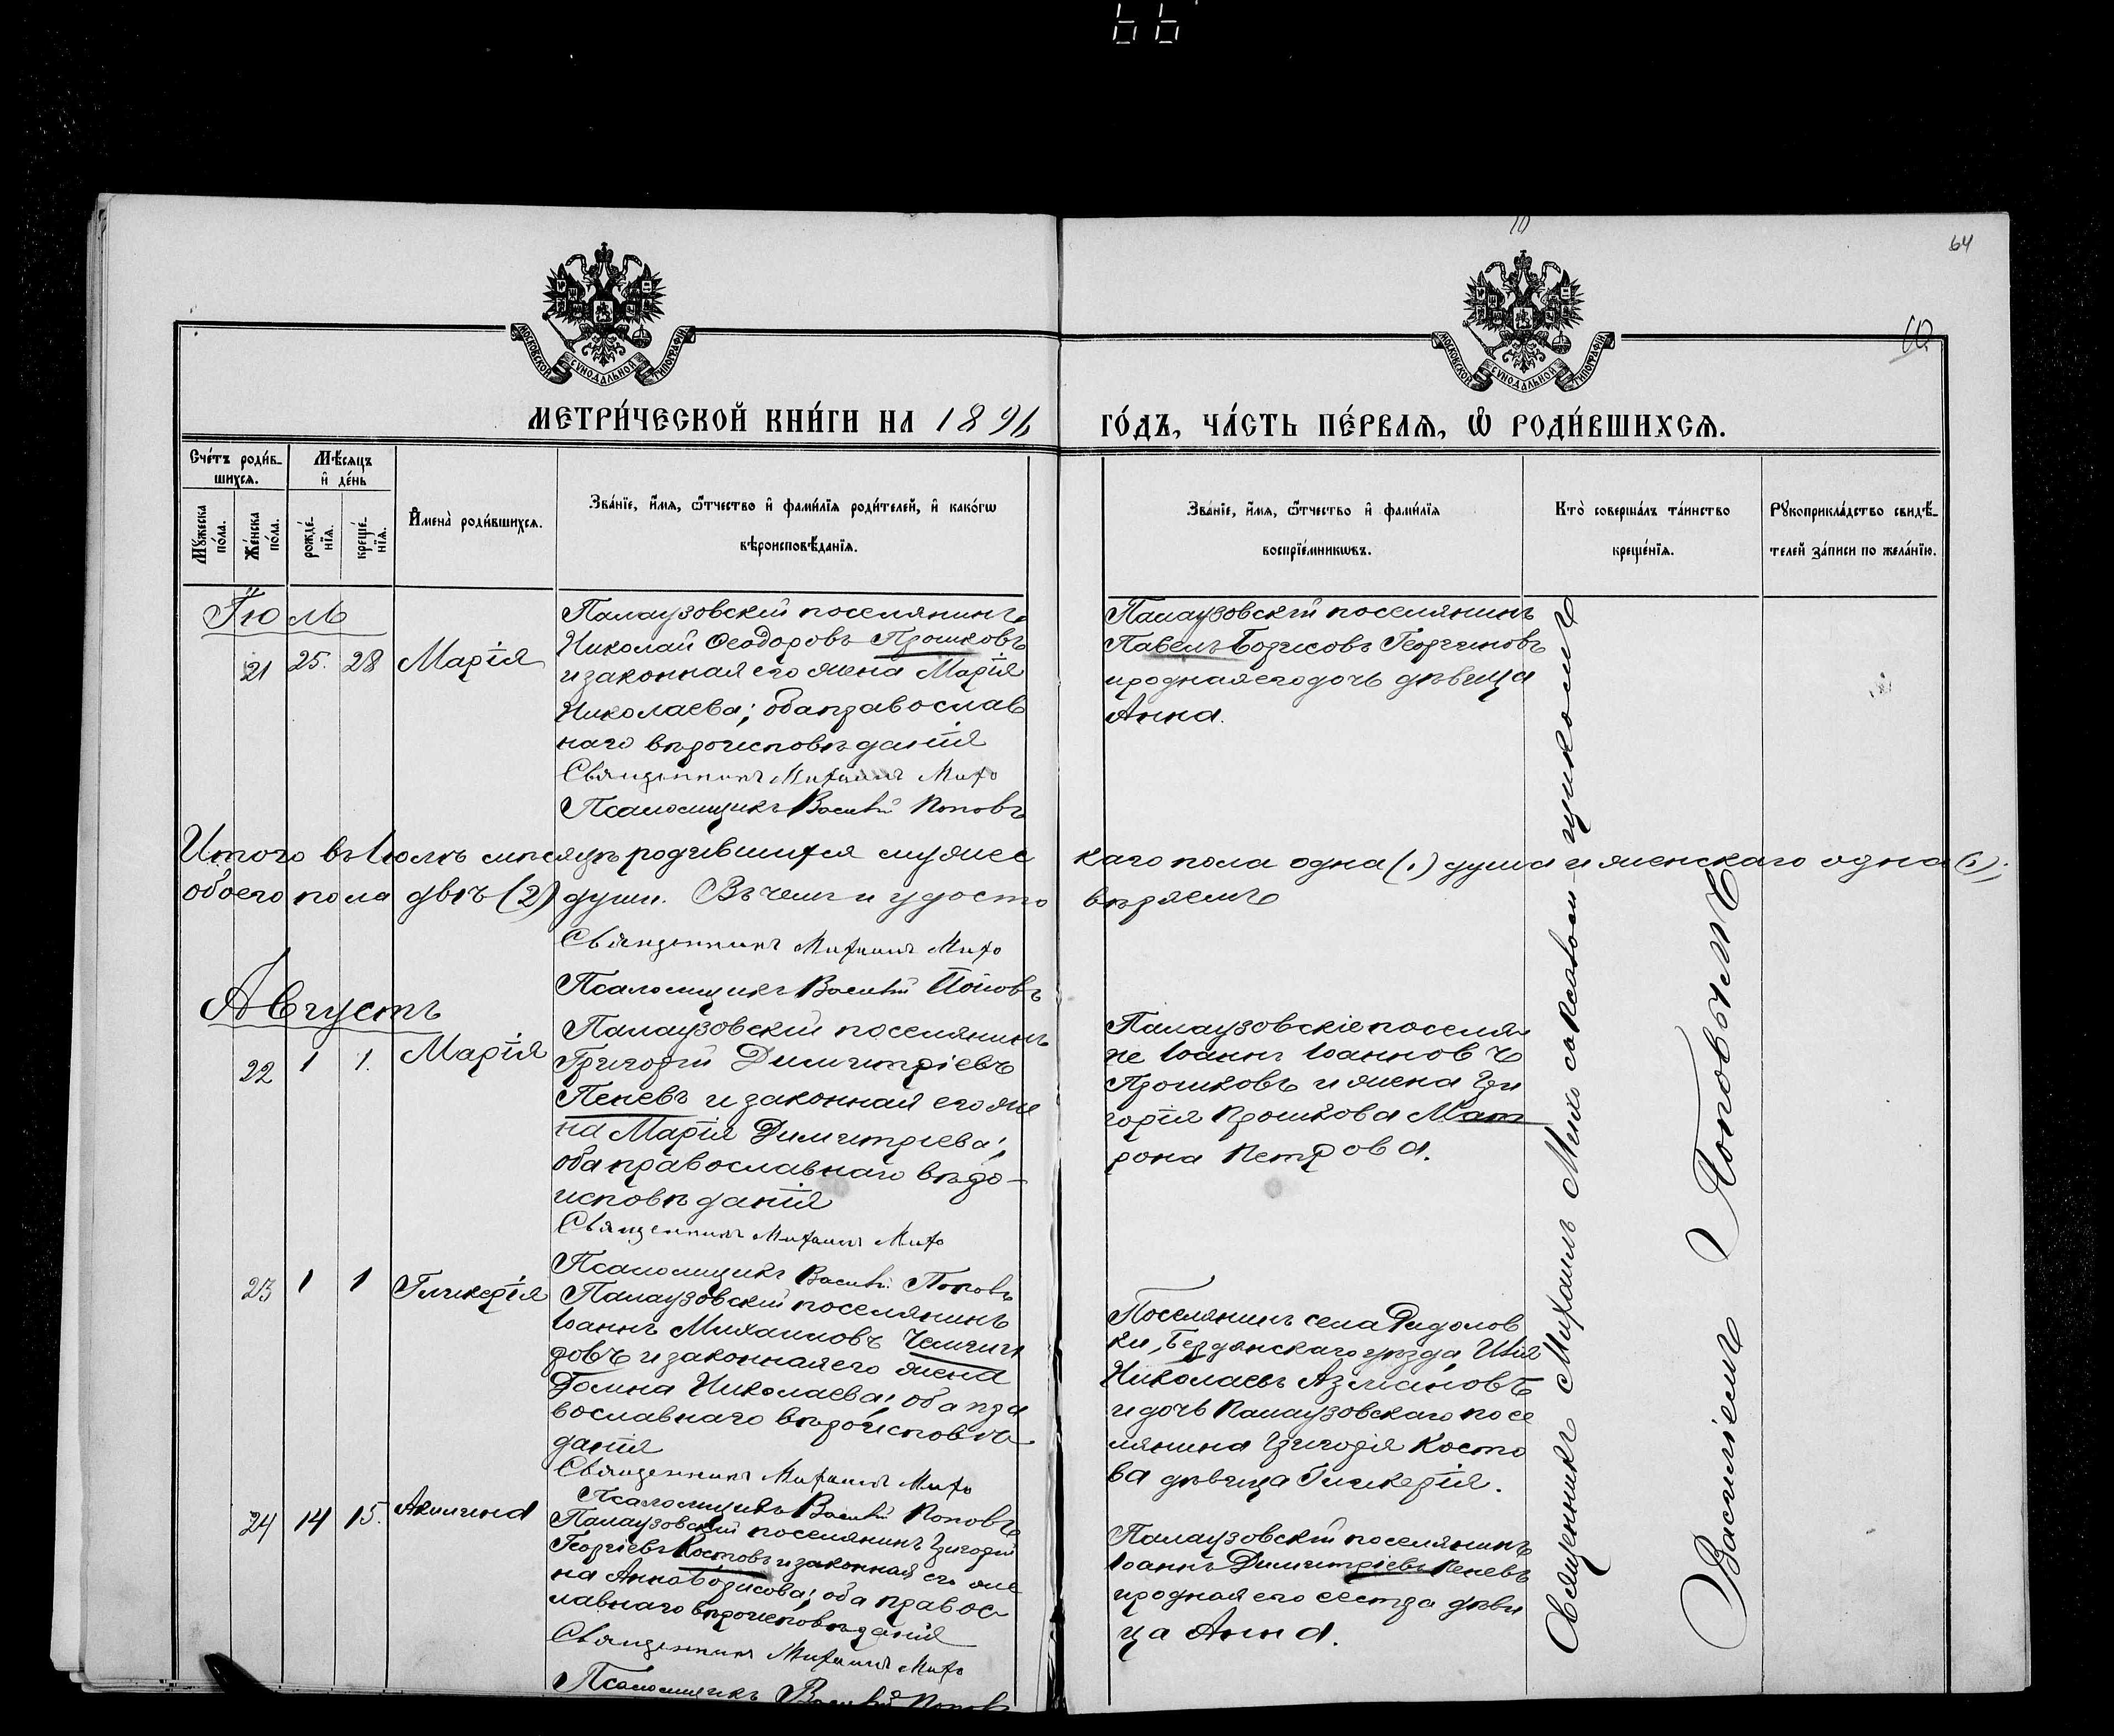 66
10
64
МОСКОВСКОЙ СУНОДАЛЬНОЙ ТИПОГРАФІИ
МОСКОВСКОЙ СУНОДАЛЬНОЙ ТИПОГРАФІИ
60.
МЕТРИ́ЧЕСКОЙ КНИ́ГИ НА 1896 ГО́ДЪ, ЧА́СТЬ ПЕ́РВАѦ, Ѡ РОДИ́ВШИХСѦ.
Сче́тъ роди́в-
шихсѧ.
Мѣ́сяцъ
и де́нь
Му́жеска
по́ла.
Же́нска
по́ла.
рожде́-
нїѧ.
креще́-
нїѧ.
И҆мена̀ роди́вшихсѧ.
Зва́нїе, и҆́мѧ, ѻ҆́тчество и҆ фами́лїѧ роди́телей, и҆ како́гѡ
вѣроисповѣ́данїѧ.
Зва́нїе, и҆́мѧ, ѻ҆́тчество и҆ фами́лїѧ
воспрїе́мникѡвъ.
Кто̀ соверша́лъ та́инство
креще́нїѧ.
Рꙋкоприкла́дство свидѣ́-
телей за́писи по жела́нїю.
Іюль
21 25. 28 Марія
Палаузовскій поселянинъ
Николай Ѳеодоровъ Прошковъ
и законная его жена Марія
Николаева; оба православ
наго вѣроисповѣданія
Священникъ Михаилъ Михо
Псаломщикъ Василій Поповъ
Палаузовскій поселянинъ
Павелъ Борисовъ Георгиновъ
и родная его дочь дѣвица
Анна.
Итого въ Іюлѣ мѣсяцѣ родившихся мужес каго пола одна (1) душа и женскаго одна (1);
обоего пола двѣ (2) души. Въ чемъ и удосто вѣряемъ
Священникъ Михаилъ Михо
Псаломщикъ Василій Поповъ
Августъ
22 1 1. Марія
Палаузовскій поселянинъ
Григорій Димитріевъ
Пеневъ и законная его же
на Марія Димитріева;
оба православнаго вѣро-
исповѣданія
Священникъ Михаилъ Михо
Псаломщикъ Василій Поповъ
Палаузовскіе поселя
не Іоаннъ Іоанновъ
Прошковъ и жена Гри
горія Прошкова Мат
рона Петрова.
23 1 1 Гликерія
Палаузовскій поселянинъ
Іоаннъ Михаиловъ
и законная его жена
Николаева; оба пра
вославнаго вѣроисповѣ
данія
Священникъ Михаилъ Михо
Псаломщикъ Василій Поповъ
Поселянинъ села
ки, Бердянскаго уѣзда Илія
Николаевъ Азмановъ
и дочь Палаузовскаго посе
лянина Григорія Косто
ва дѣвица Гликерія.
24 14 15. Акилина
Палаузовскій поселянинъ Григорій
Георгіевъ Костовъ и законная его же
на Анна Борисова; оба правос
лавнаго вѣроисповѣданія
Священникъ Михаилъ Михо
Псаломщикъ Василій Поповъ
Палаузовскій поселянинъ
Іоаннъ Димитріевъ Пеневъ
и родная его сестра дѣви
ца Анна.
Священникъ Михаилъ Михо съ псаломщикомъ
Василіемъ Поповымъ